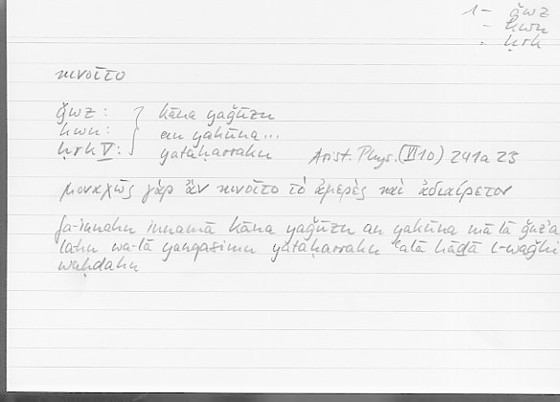 1- ǧwz
- kwn
- ḥrk
κινοῖτο
ǧwz : kāna yaǧūzu
kwn : an yakūna...
ḥrk V : yataḥarraku Arist. Phys. (VI 10) 241a23
μοναχῶς γὰρ ἂν κινοῖτο τὸ ἀμερὲς καὶ ἀδιαίρετον
fa-innahu innamā kāna yaǧūzu an yakūna mā lā ǧuzʾa
lahu wa-lā yanqasimu yataḥarraku ʿalā hāḏā l-waǧhi
waḥdahu